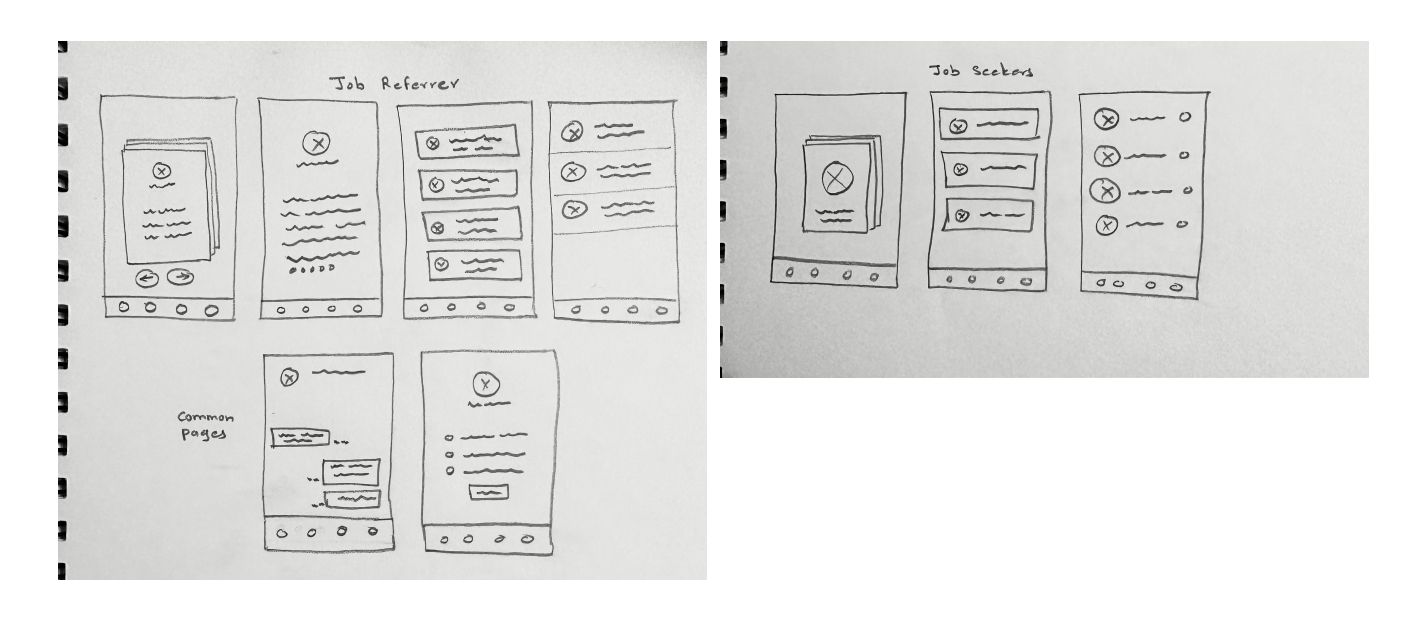 Job Referrer
Common
pages
Job Seekers